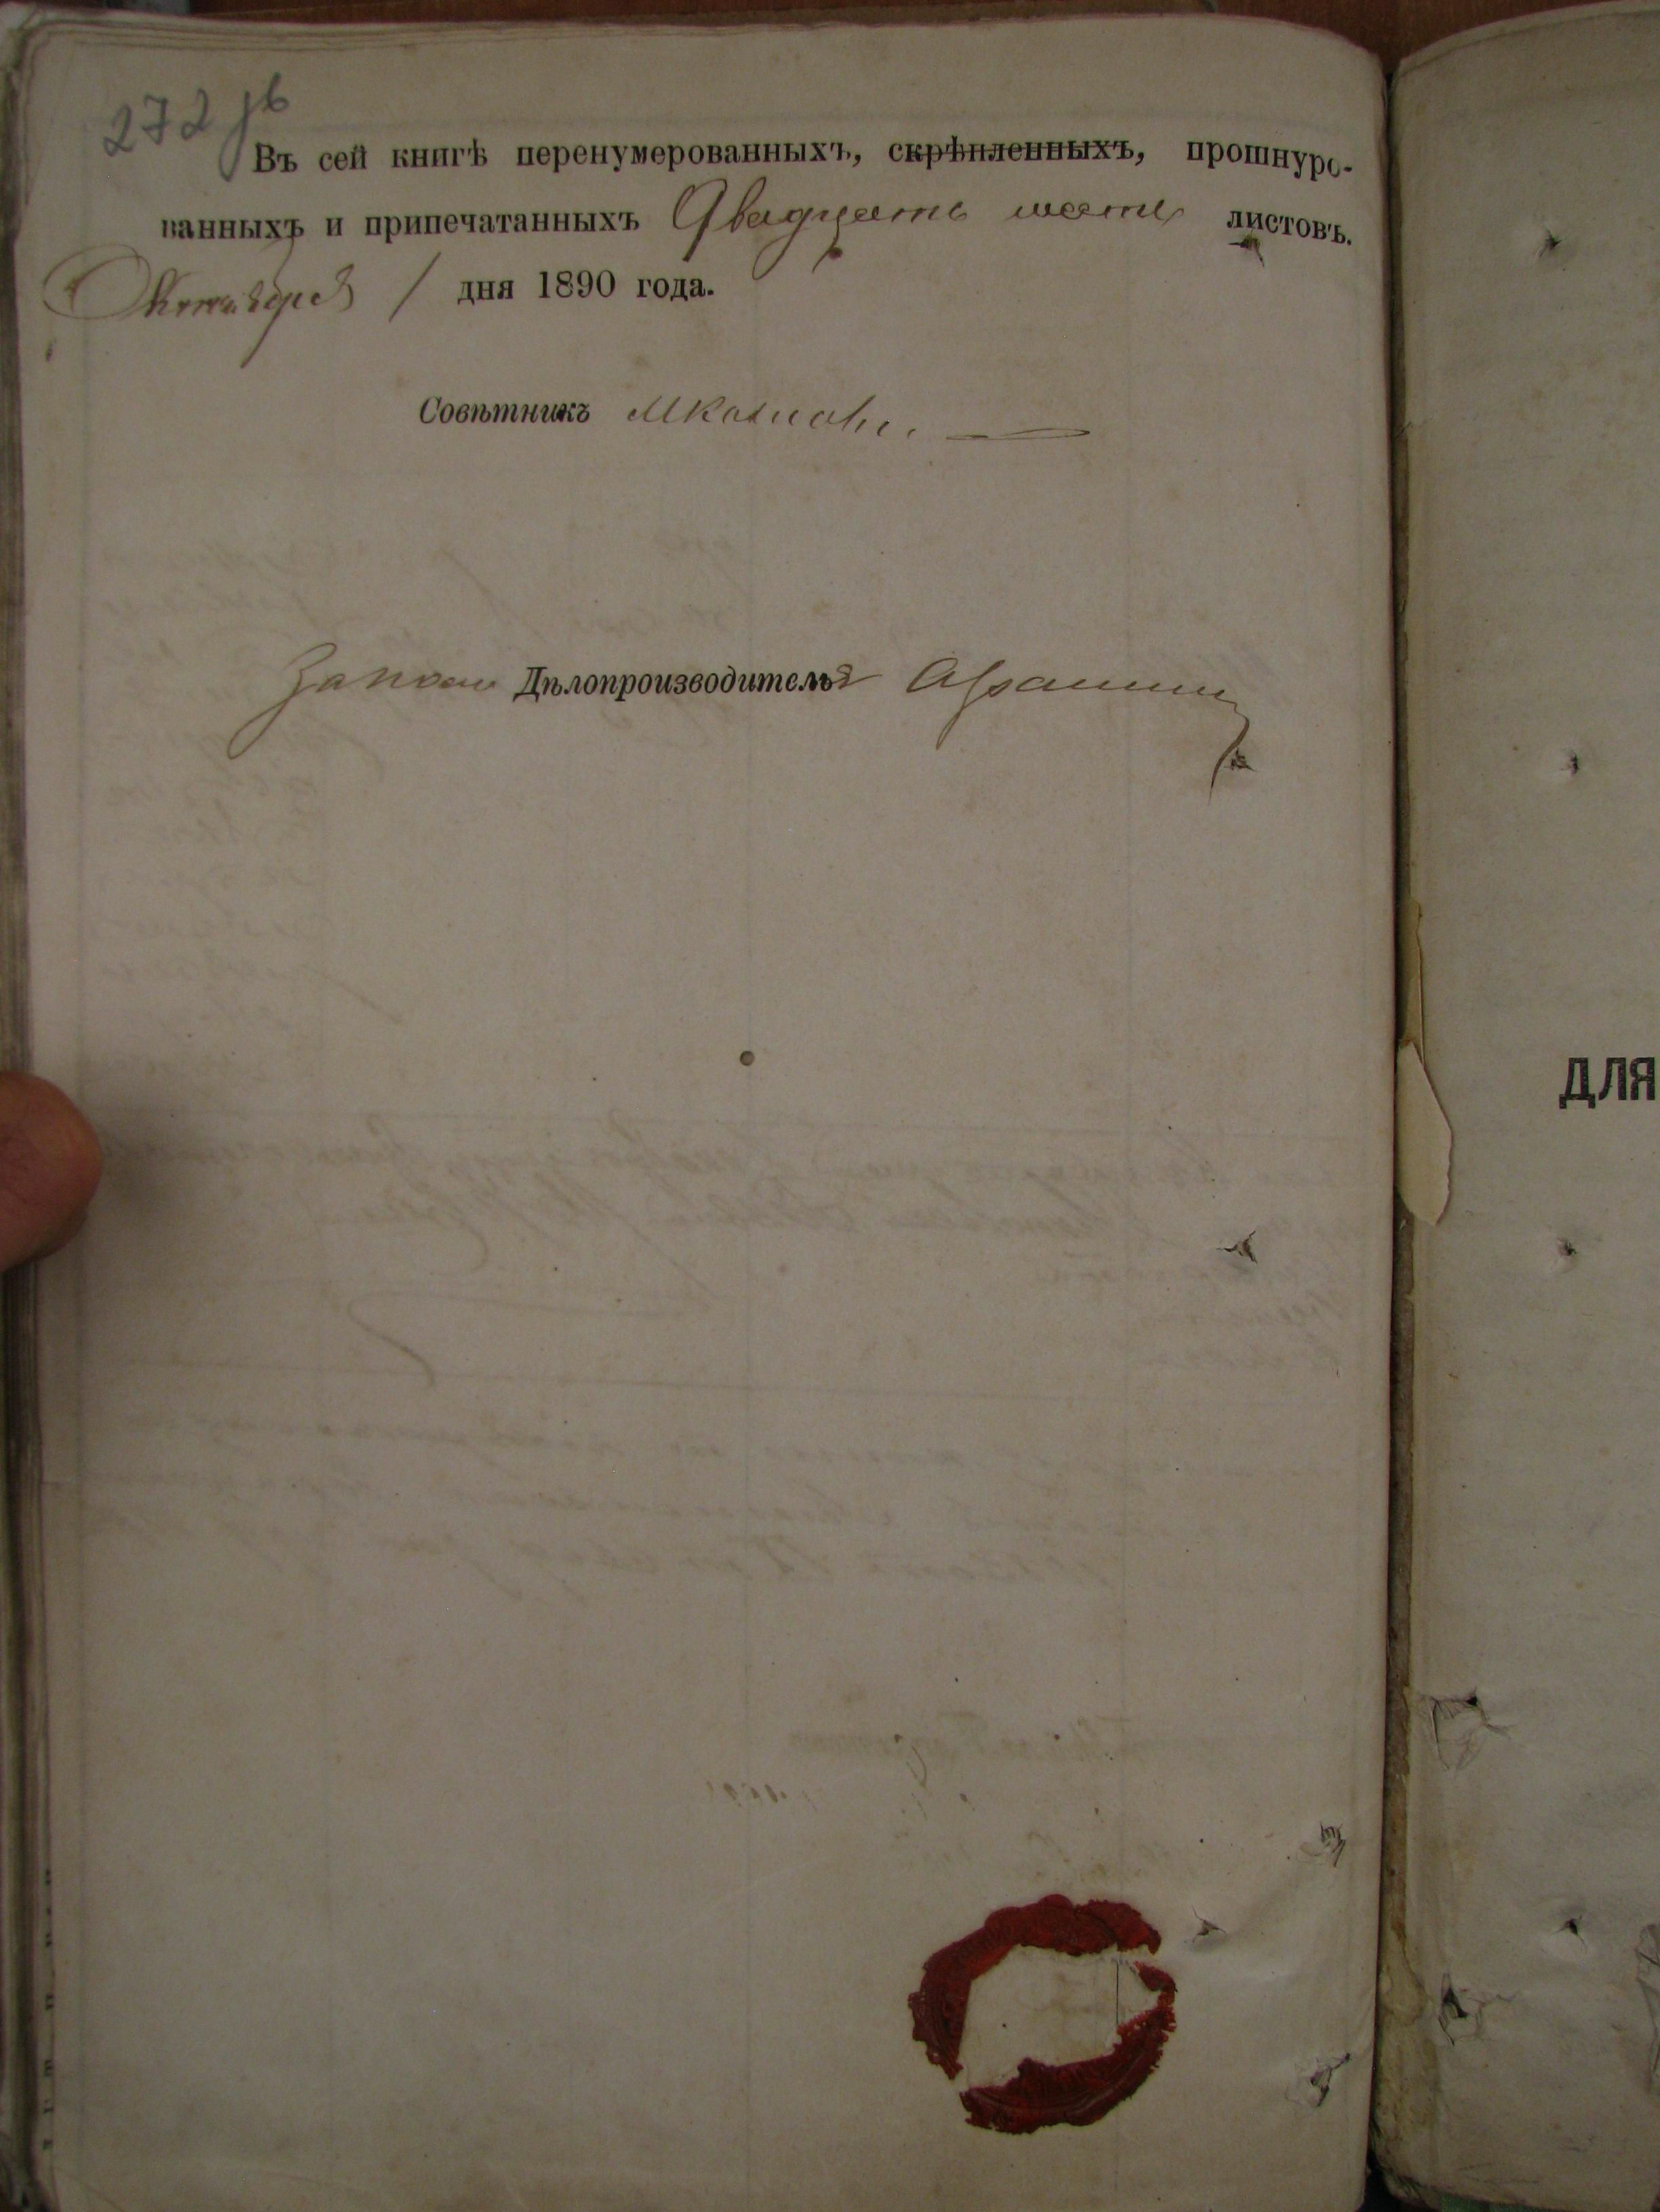 272 об
Въ сей книгѣ перенумерованныхъ, скрѣпленныхъ, прошнуро-
ванныхъ и припечатанныхъ Двадцать шесть листовъ.
Октября 1 дня 1890 года.
Совѣтникъ
Дѣлопроизводителя
ДЛЯ